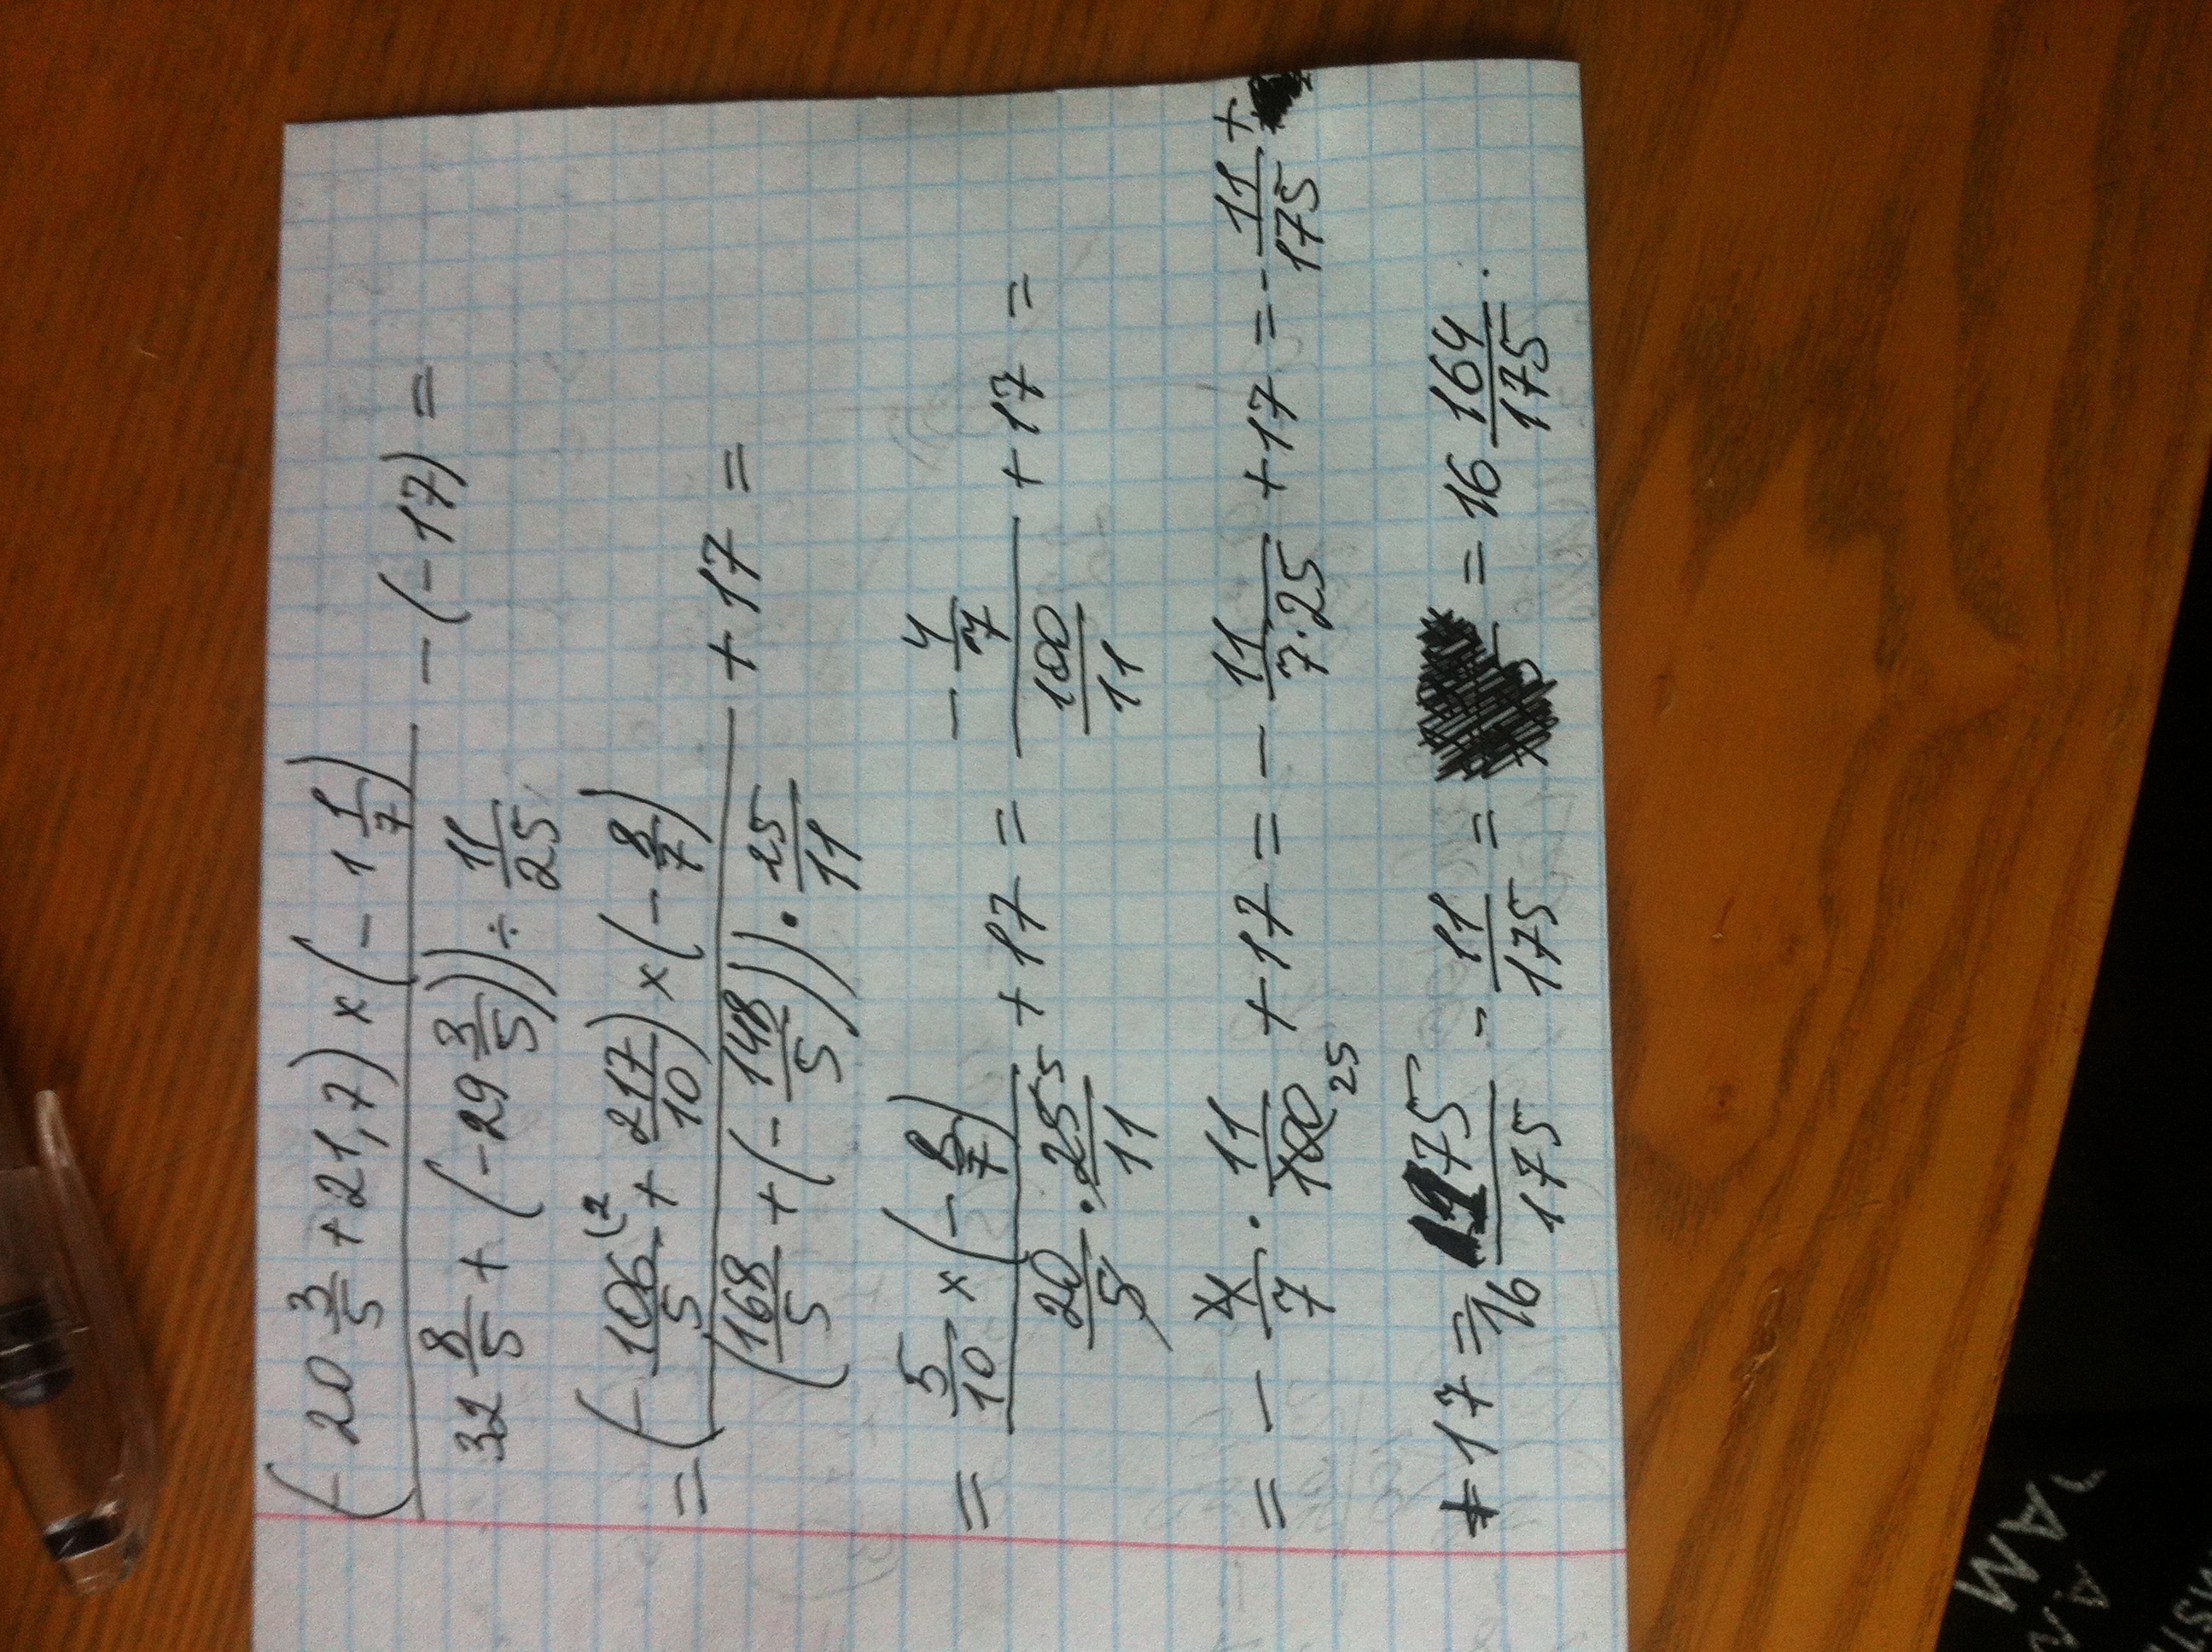 (- 20 3/5 + 21,7) × (- 1 1/7)
――――――――――――――― - (-17) =
32 8/5 + (-29 3/5)) ÷ 11/25
= (- 106/5 (2 + 217/10) × (- 8/7)
――――――――――――――― + 17 =
(168/5 + (- 148/5))) · 25/11
= 5/10 × (- 8/7) / 20/5 · 25 5/11 + 17 = - 4/7 / 100/11 + 17 =
= - 4/7 · 11/100 25 + 17 = - 11/7·25 + 17 = - 11/175 +
+ 17 = 16 175/175 - 11/175 = = 16 164/175.
АМ